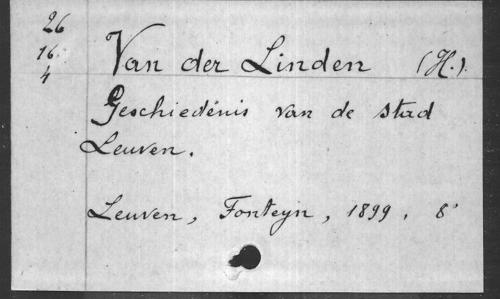 26
16
4
Van der Linden (H.).
Geschiedenis van de stad
Leuven.
Leuven, Fonteyn, 1899. 8°